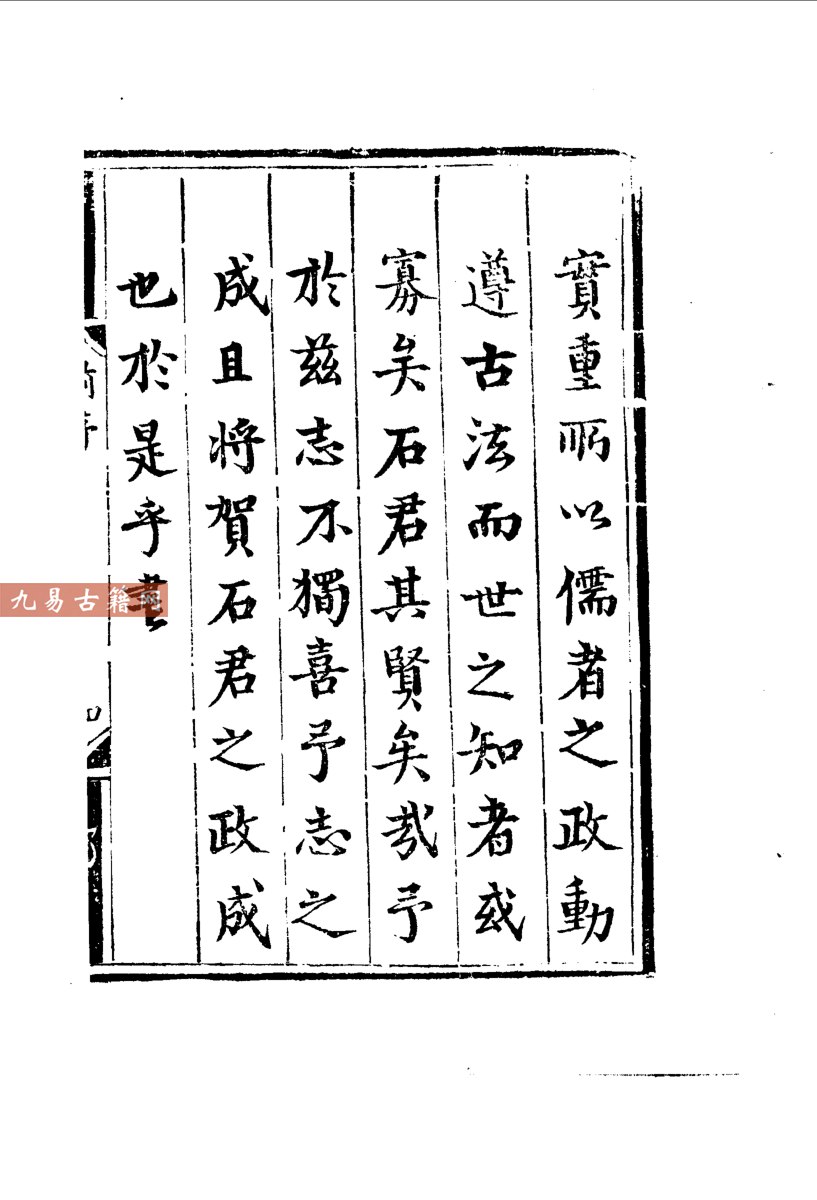 寳重所以儒者之政動
遵古法而世之知者或
寡矣石君其賢矣哉予
於兹志不獨喜予志之
成且将賀石君之政成
也於是乎書
九易古籍网